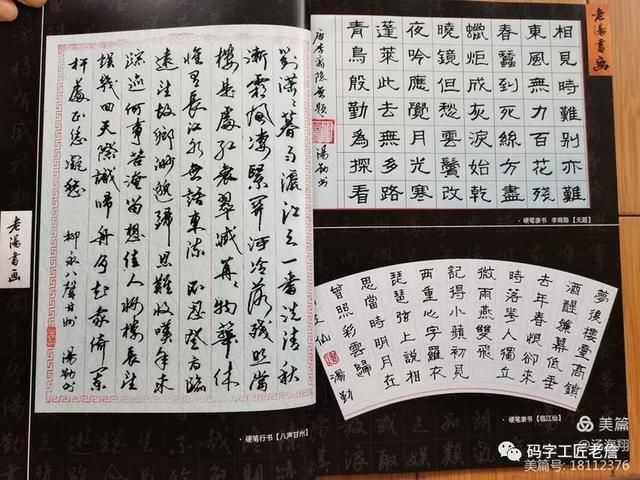 老湯書画
相見時難別亦難
東風無力百花殘
春蠶到死絲方盡
蠟炬成灰淚始乾
曉鏡但愁雲鬢改
夜吟應覺月光寒
蓬萊此去無多路
青鳥殷勤為探看
唐李商隱無題 湯勤书
·硬笔隶书 李商隐【无题】
對瀟瀟暮雨灑江天一番洗清秋
漸霜風淒緊關河冷落殘照當
樓是處紅衰翠減苒苒物華休
惟有長江水無語東流 不忍登高臨
遠望故鄉渺邈歸思難收嘆年來
踪迹何事苦淹留想佳人妝樓長望
誤幾回天際識歸舟爭知我倚闌
杆處正恁凝愁 柳永八聲甘州 湯勤书
·硬笔行书【八声甘州】
老湯書画
夢後樓臺高鎖
酒醒簾幕低垂
去年春恨卻來
時落花人獨立
微雨燕雙飛
記得小蘋初見
兩重心字羅衣
琵琶弦上說相
思當時明月在
曾照彩雲歸
仙 湯勤
·硬笔隶书【临江仙】
美篇
码字工匠老詹
美篇号: 18112376